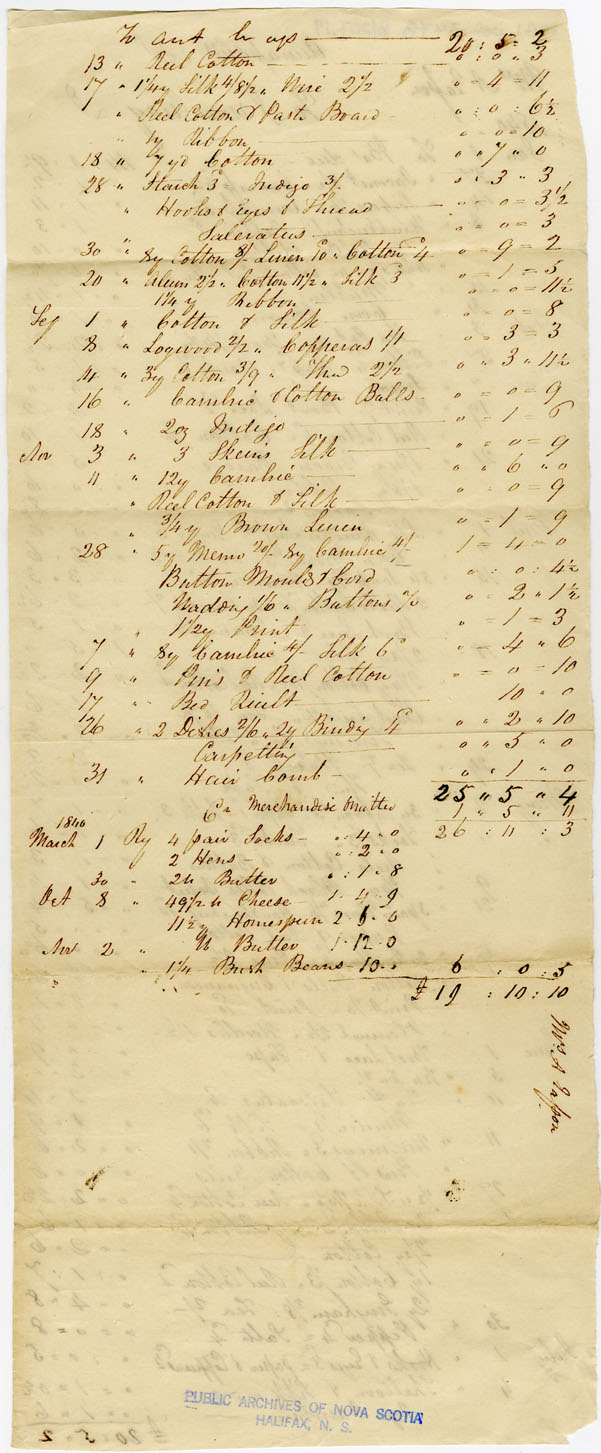 To amt br up 20 : 5 = 2
13 " Reel Cotton " : 0 " 3
17 " 1 1/4 y Silk 4/8 1/2 " Wire 2 1/2 " = 4 = 11
" Reel Cotton & Past Board " : 0 : 6 1/2
" 1y Ribbon " = 0 = 10
18 " 7 yd Cotton " " 7 " 0
28 " Starch 3d Indigo 3/. " : 3 " 3
" Hooks & Eyes & Thread " = 0 = 3 1/2
" Saleratus " = 0 = 3
30 " 8y Cotton 8/- Linen 10 " Cotton 4 " = 9 = 2
20 " Alum 2 1/2 " Cotton 11 1/2 " Silk 3 " = 1 = 5
1 1/4 y Ribbon " = 0 = 11 1/2
Sep 1 " Cotton & Silk " = 0 = 8
8 " Logwood 2/2 " Copperas 1/1 " = 3 = 3
14 " 3y Cotton 3/9 " Thd 2 1/2 " " 3 " 11 1/2
16 " Cambric & Cotton Balls " = 0 = 9
18 " 2oz Indigo " = 1 = 6
Nov 3 " 3 Skeins Silk " = 0 = 9
11 " 12y Cambric " " 6 " 0
" Reel Cotton & Silk " = 0 = 9
" 3/4 y Brown Linen " = 1 = 9
28 " 5y Merno 20/- 8y Cambric 4/- 1 = 4 = 0
Button Moulds & Cord " : 0 : 4 1/2
Wadding 1/6 " Buttons " = 2 " 1 1/2
" 1 1/2 y Print " = 1 = 3
7 " 8y Cambric 4/- Silk 6d " = 4 " 6
9 " Pins & Reel Cotton " = 0 = 10
17 " Bed Quilt 10 " 0
26 " 2 Dishes 2/6 " 2y Binding 4d " " 2 " 10
Carpetting " " 5 " 0
31 " Hair Comb " " 1 " 0
25 " 5 " 4
Merchandise omitted 1 " 5 " 11
26 : 11 : 3
1840
March 1 By 4 pair Socks " : 4 " 0
" 2 Hens " : 2 " 0
30 " 2 lb Butter " : 1 - 8
Oct 8 " 49 1/2 lb Cheese 1 - 4 - 9
11 1/2 y Homespun 2 6 - 0
Nov 2 " lb Butter 1 - 12 - 0
" 1 1/4 Bush Beans 10 - " 6 : 0 : 5
£ 19 : 10 : 10
Mrs A
PUBLIC ARCHIVES OF NOVA SCOTIA
HALIFAX, N. S.